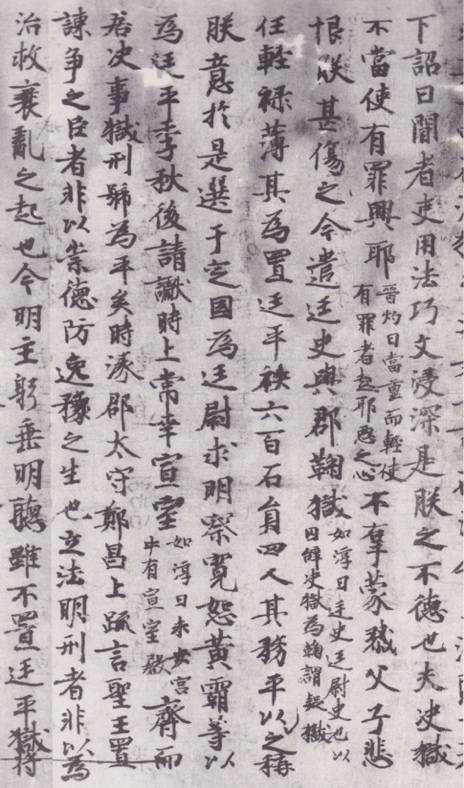 下詔曰間者吏用法巧文浸深是朕之不德也夫决獄
不當使有罪興耶晉灼曰當重而輕使有罪者起耶惡之心不辜蒙戮父子悲
恨朕甚傷之今遣廷史與郡鞫獄如淳曰廷史廷尉史也以囚辭决獄為鞫謂疑獄
任輕禄薄其為置廷平秩六百石員四人其務平以之稱
朕意於是選于定國為廷尉求明察寬恕黃霸等以
為廷平季秋後請讞時上常幸宣室如淳曰未央宮中有宣室殿齊而
居决事獄刑號為平矣時涿郡太守鄭昌上疏言聖王置
諫爭之臣者非以崇德防逸豫之生也立法明刑者非以為
治救衰亂之起也今明主躬垂明聽雖不置廷平獄将